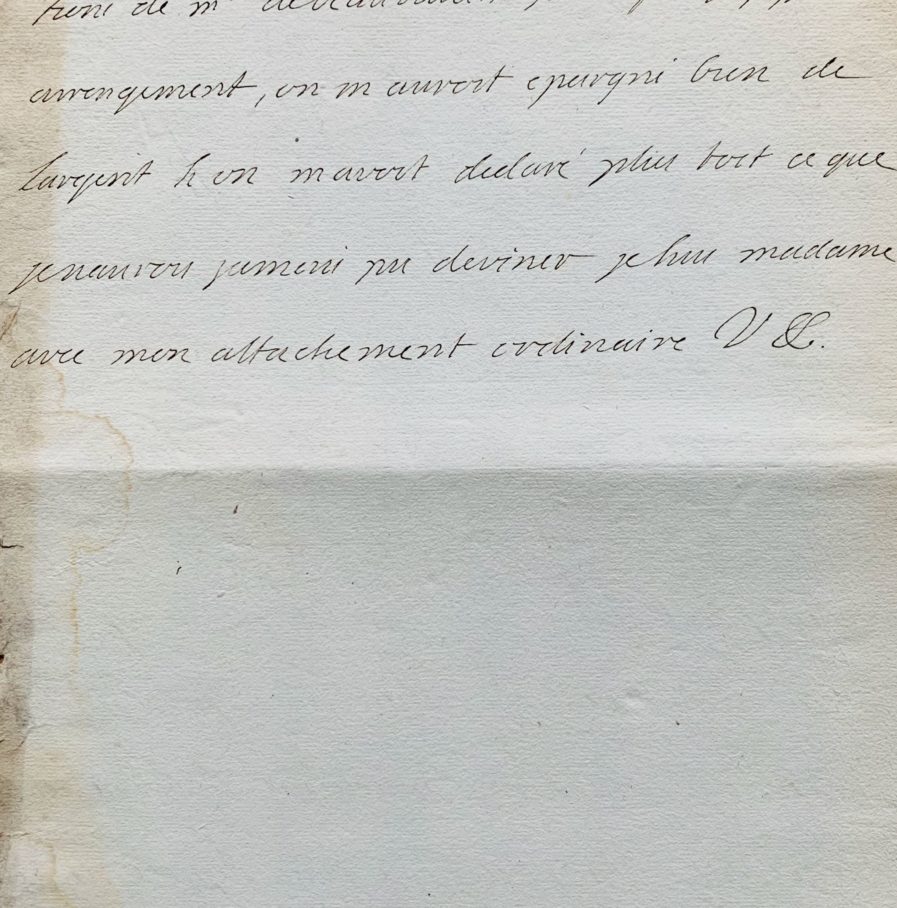 de mr
arrengement, on m auroit epargné bien de
largent si on m avoit declaré plus tost ce que
je naurois jamais pu deviner je suis madame
avec mon attachement ordinaire V &.